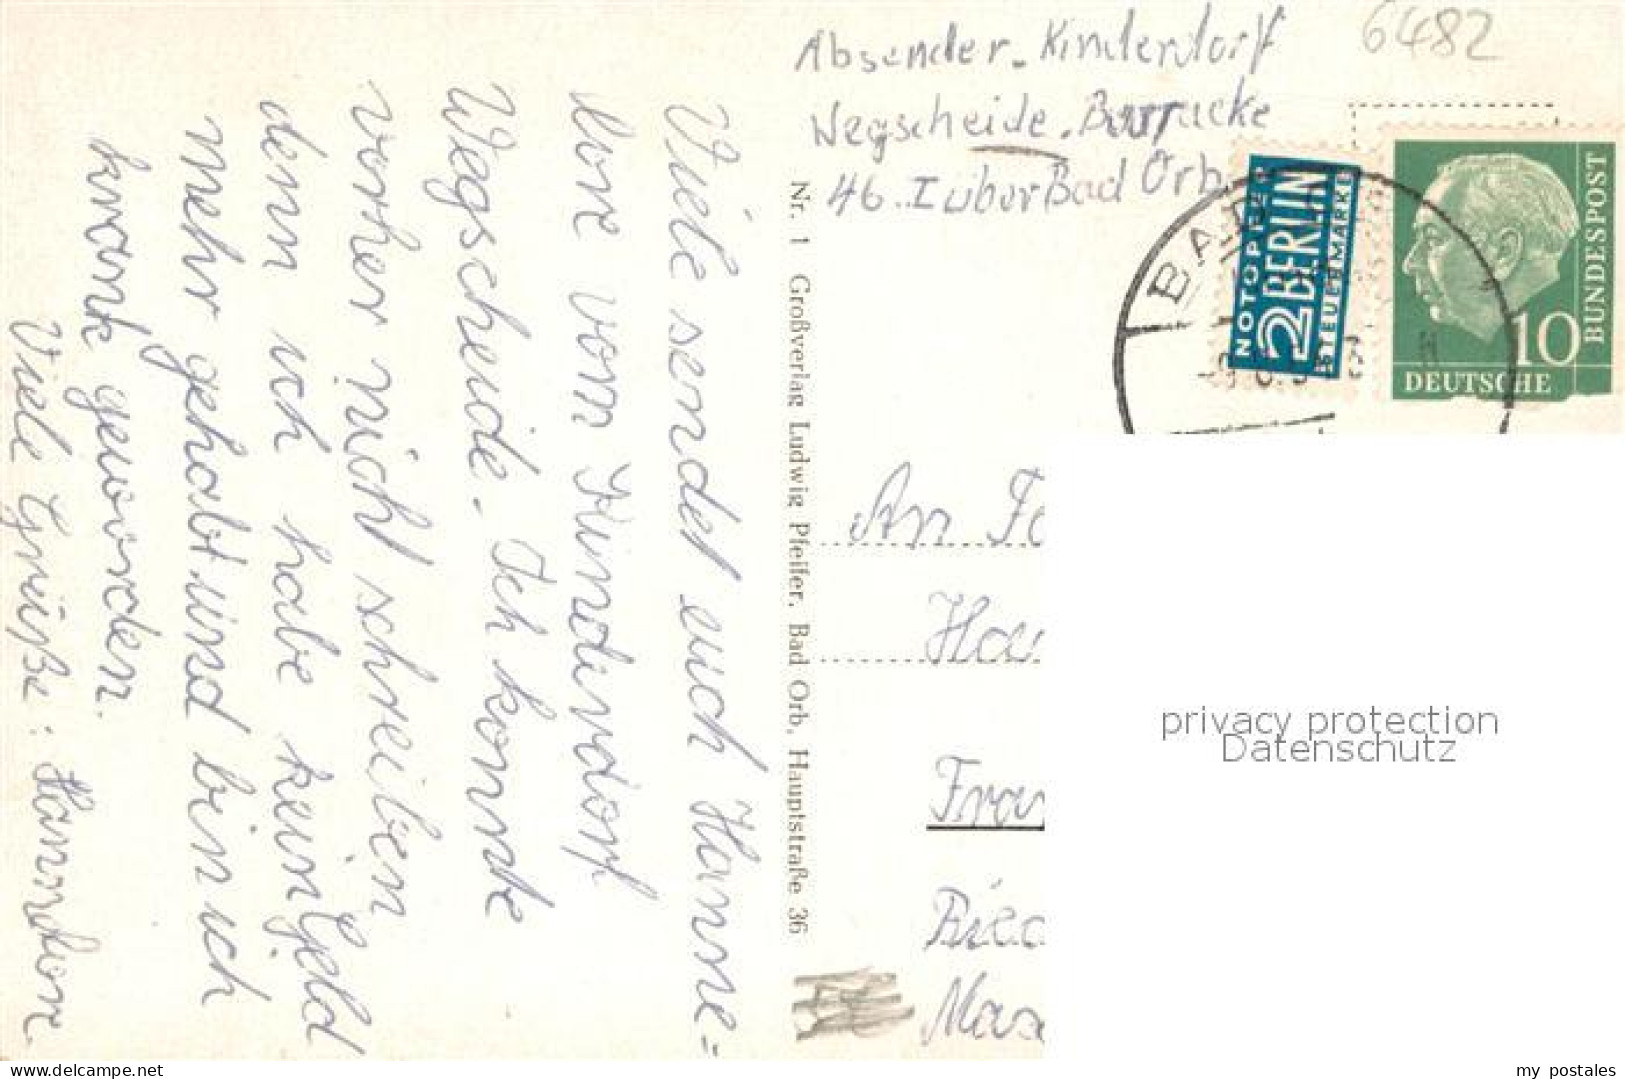 6482
Absender. Kinderdorf
Wegscheide. Barracke
46. I über Bad Orb
NOTOPFER
2 BERLIN
STEUERMARKE
BUNDESPOST
10
DEUTSCHE
BAD
Viele sendet euch Hanne=
lore vom Kinderdorf
Wegscheide. Ich konnte
vorher nicht schreiben
denn ich habe kein Geld
mehr gehabt und bin ich
krank geworden.
Viele Grüße: Hannelore
Nr. 1 Großverlag Ludwig Pfeifer, Bad Orb, Hauptstraße 36
An Fa
Hau
Fran
Ried
Max
privacy protection
Datenschutz
my_postales